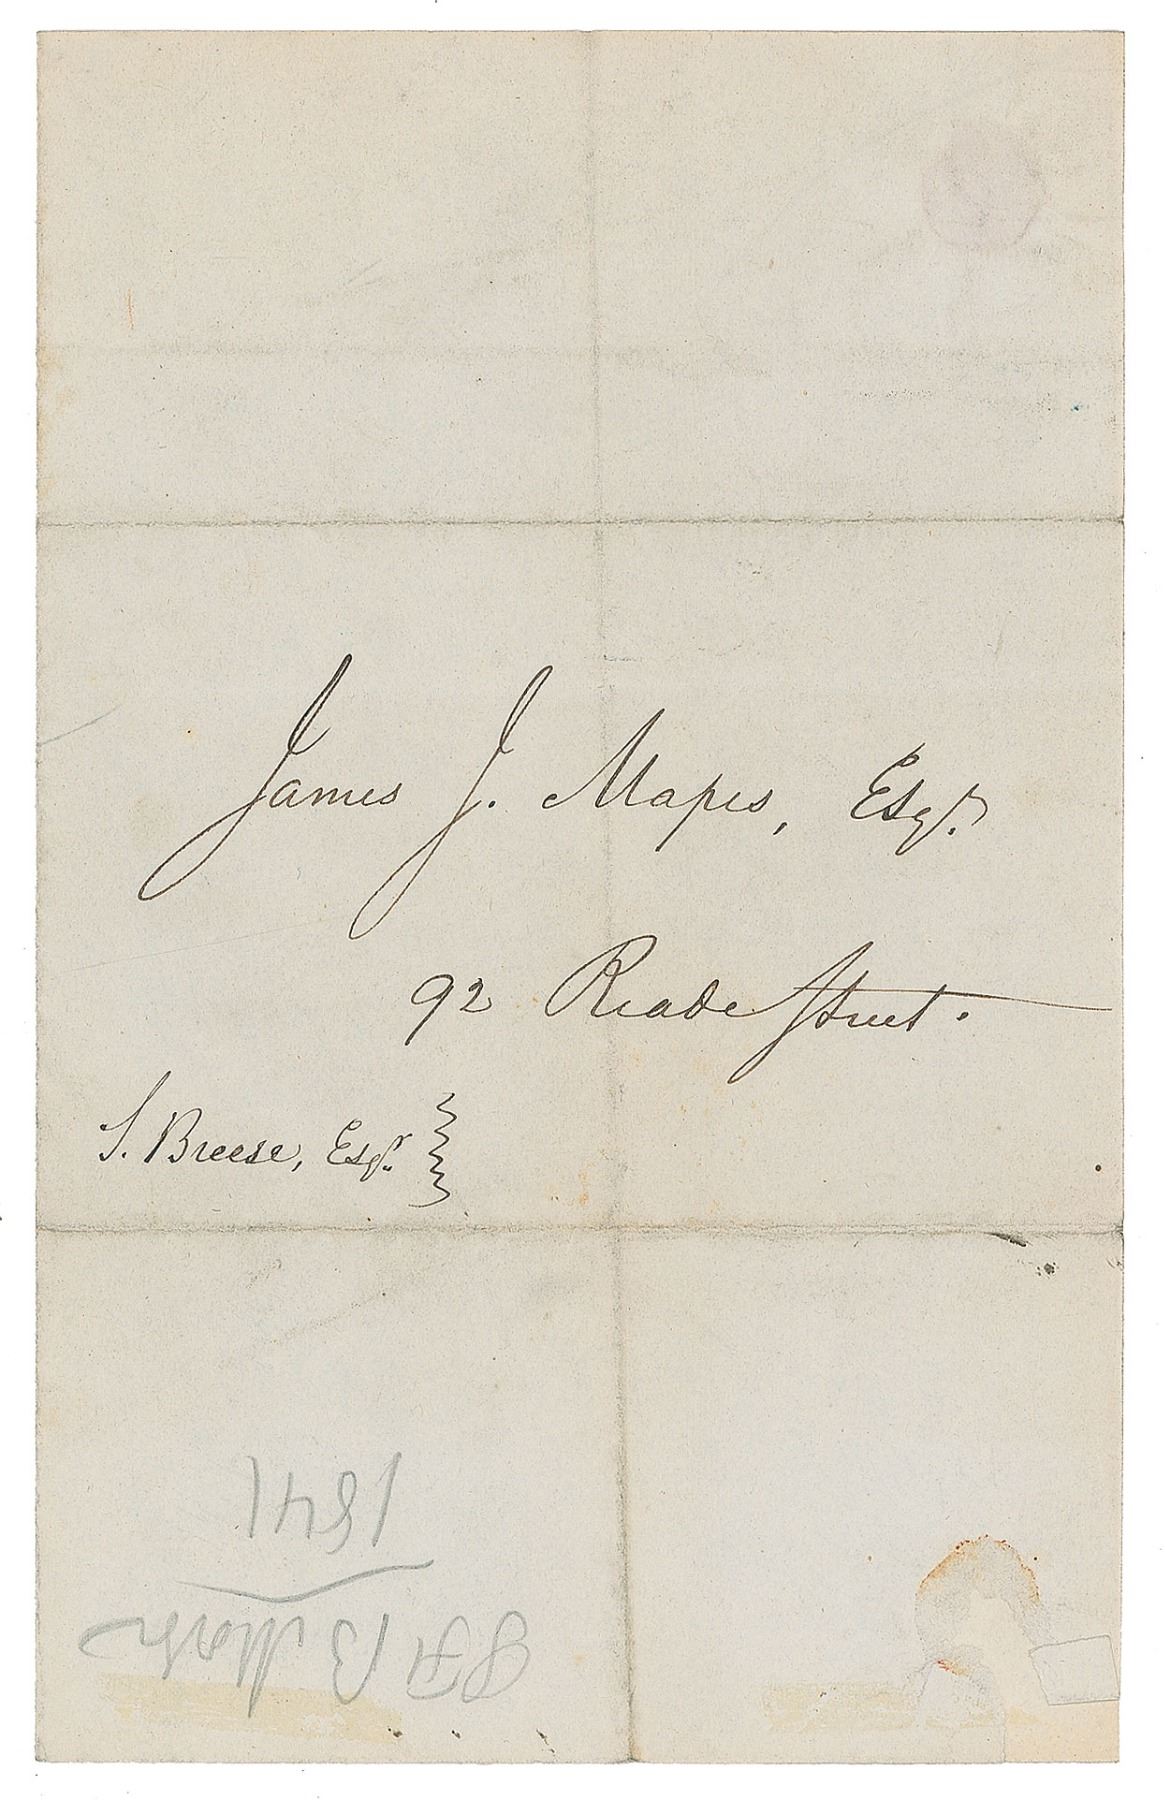 James J. Mapes, Esqr.
92 Reade Street.
S. Breese, Esqr.
S F B Morse
1841